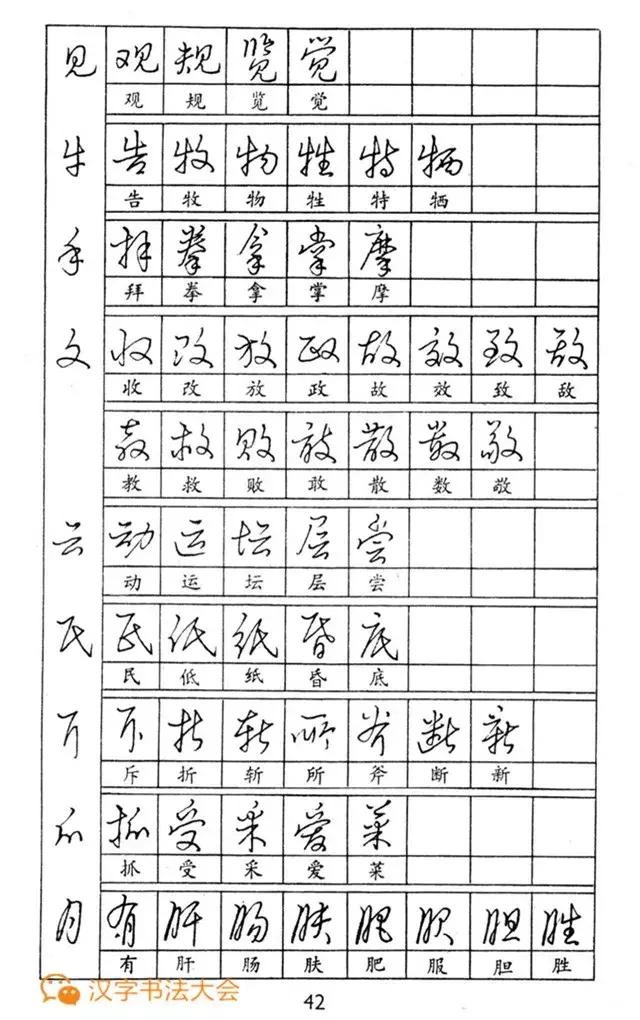 见 观 规 览 觉
观 规 览 觉
牛 告 牧 物 牲 特 牺
告 牧 物 牲 特 牺
手 拜 拳 拿 掌 摩
拜 拳 拿 掌 摩
文 收 改 放 政 故 效 致 敌
收 改 放 政 故 效 致 敌
教 救 败 敢 散 数 敬
教 救 败 敢 散 数 敬
云 动 运 坛 层 尝
动 运 坛 层 尝
民 民 低 纸 昏 底
民 低 纸 昏 底
斤 斥 折 斩 所 斧 断 新
斥 折 斩 所 斧 断 新
爪 抓 受 采 爱 菜
抓 受 采 爱 菜
月 有 肝 肠 肤 肥 服 胆 胜
有 肝 肠 肤 肥 服 胆 胜
汉字书法大会
42